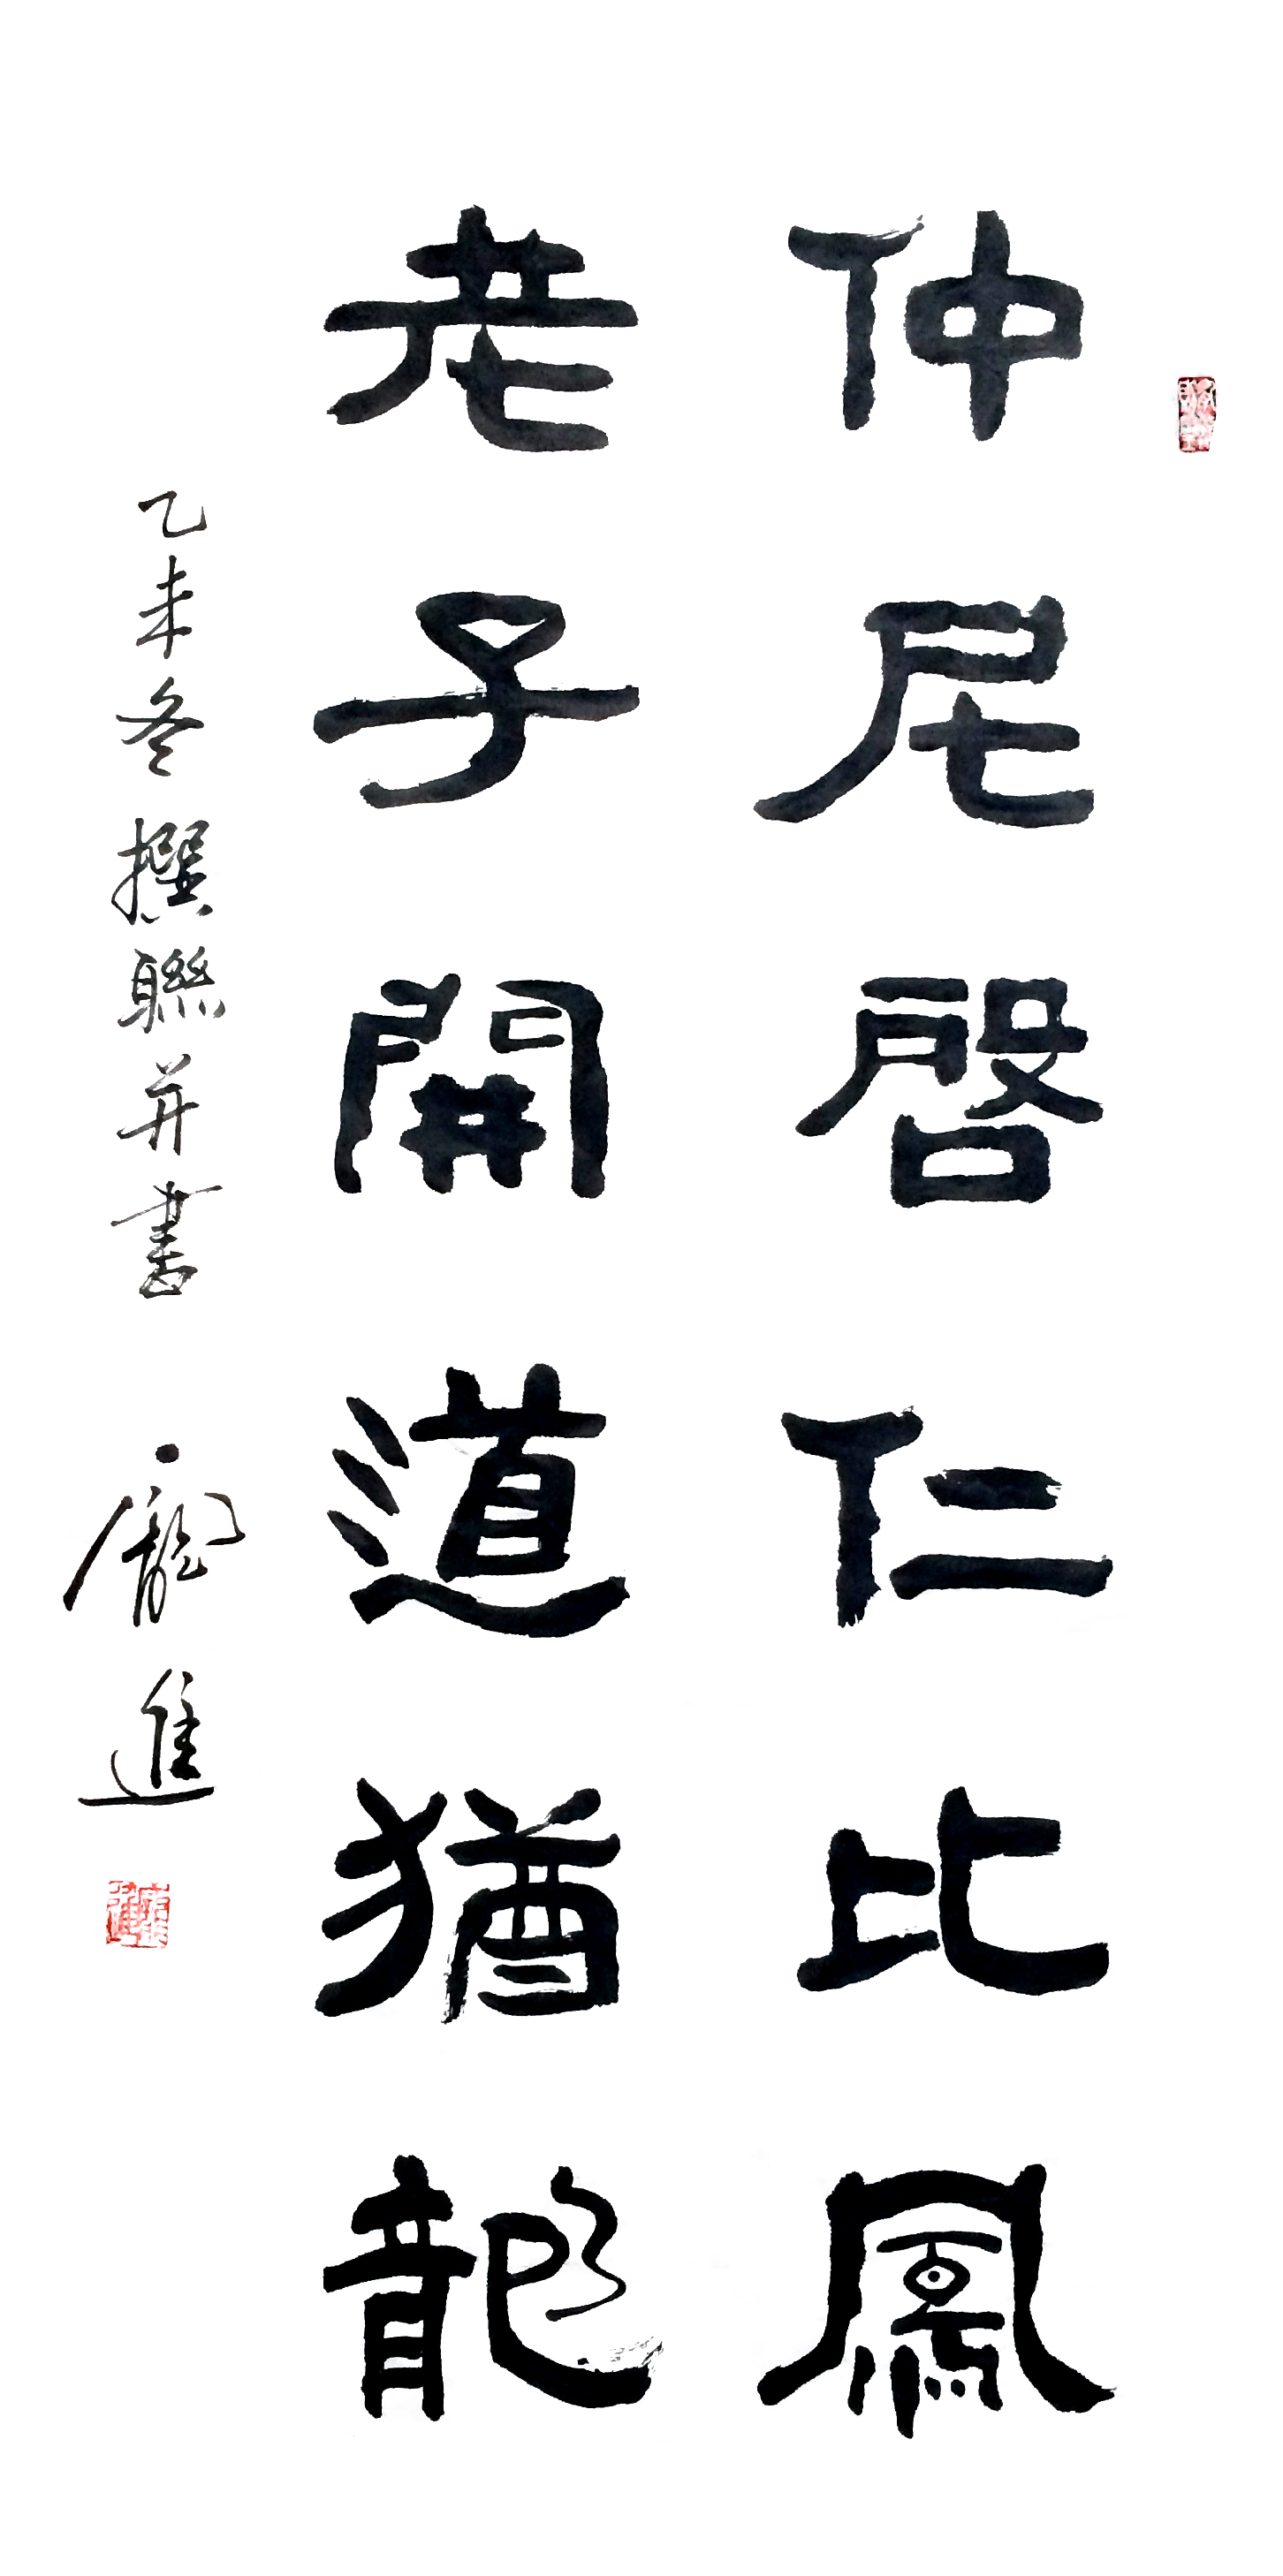 仲尼啓仁比鳳
老子開道猶龍
乙未冬撰聯并書 龐進